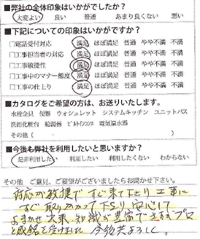 ■弊社の全体印象はいかがでしたか？
大変よい 良い 普通 あまり良くない 悪い
■下記についての印象はいかがですか？
□電話受付対応 満足 ほぼ満足 普通 やや不満 不満
□工事担当者の対応 満足 ほぼ満足 普通 やや不満 不満
□工事機能性 満足 ほぼ満足 普通 やや不満 不満
□工事中のマナー態度 満足 ほぼ満足 普通 やや不満 不満
□工事の仕上り 満足 ほぼ満足 普通 やや不満 不満
■カタログをご希望の方は、お送りいたします。
水栓金具 便器 ウォシュレット システムキッチン ユニットバス
洗面化粧台 給湯器 ビルトインコンロ 電気温水器
その他（
■今後も弊社を利用したいと思いますか？
是非利用したい 利用したい 利用したくない わからない
その他 ご意見、ご希望がございましたらお聞かせ下さい。
対応が敏速ですぐ来て下さり工事に
すぐ取りかかって下さり、安心して
おまかせ出来、知識が豊富でさすがプロ
と感銘を受けました 今後共よろしく。